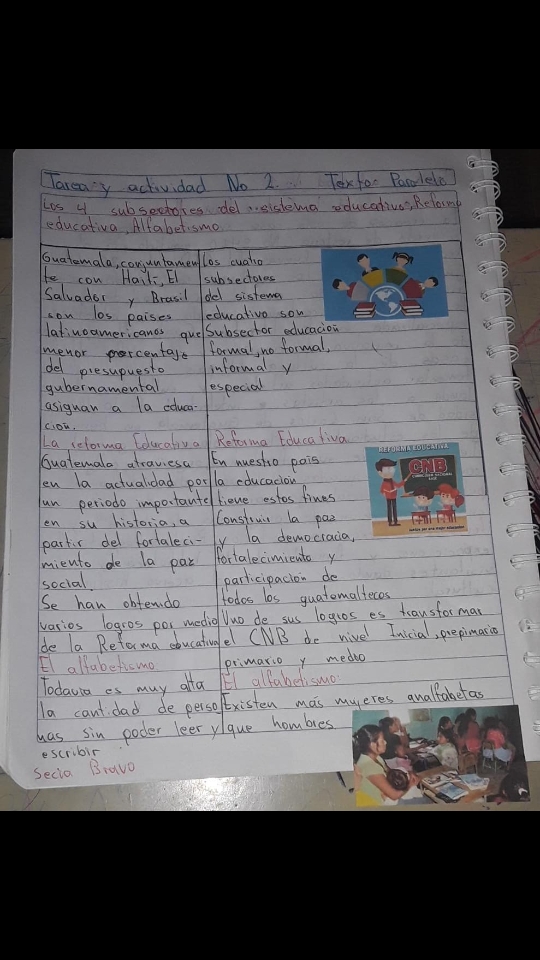 Tarea y actividad No 2. Texto Paralelo
Los 4 subsectores del sistema educativo, Reforma
educativa, Alfabetismo
Guatemala, conjuntamen
te con Haití, El
Salvador y Brasil
son los países
latinoamericanos que
menor porcentaje
del presupuesto
gubernamental
asignan a la educa-
ción.
La reforma Educativa
Guatemala atraviesa
en la actualidad por
un periodo importante
en su historia, a
partir del fortaleci-
miento de la paz
social.
Se han obtenido
varios logros por medio
de la Reforma educativa
El alfabetismo
Todavia es muy alta
la cantidad de perso
nas sin poder leer y
escribir
Secia Bravo
Los cuatro
subsectores
del sistema
educativo son
Subsector educación
formal, no formal,
informal y
especial
Reforma Educativa
En nuestro país
la educación
tiene estos fines
Construir la paz
y la democracia,
fortalecimiento y
participación de
todos los guatemaltecos
Uno de sus logros es transformar
el CNB de nivel Inicial, prepimario
primario y medio
El alfabetismo
Existen más mujeres analfabetas
que hombres
REFORMA EDUCATIVA
CNB